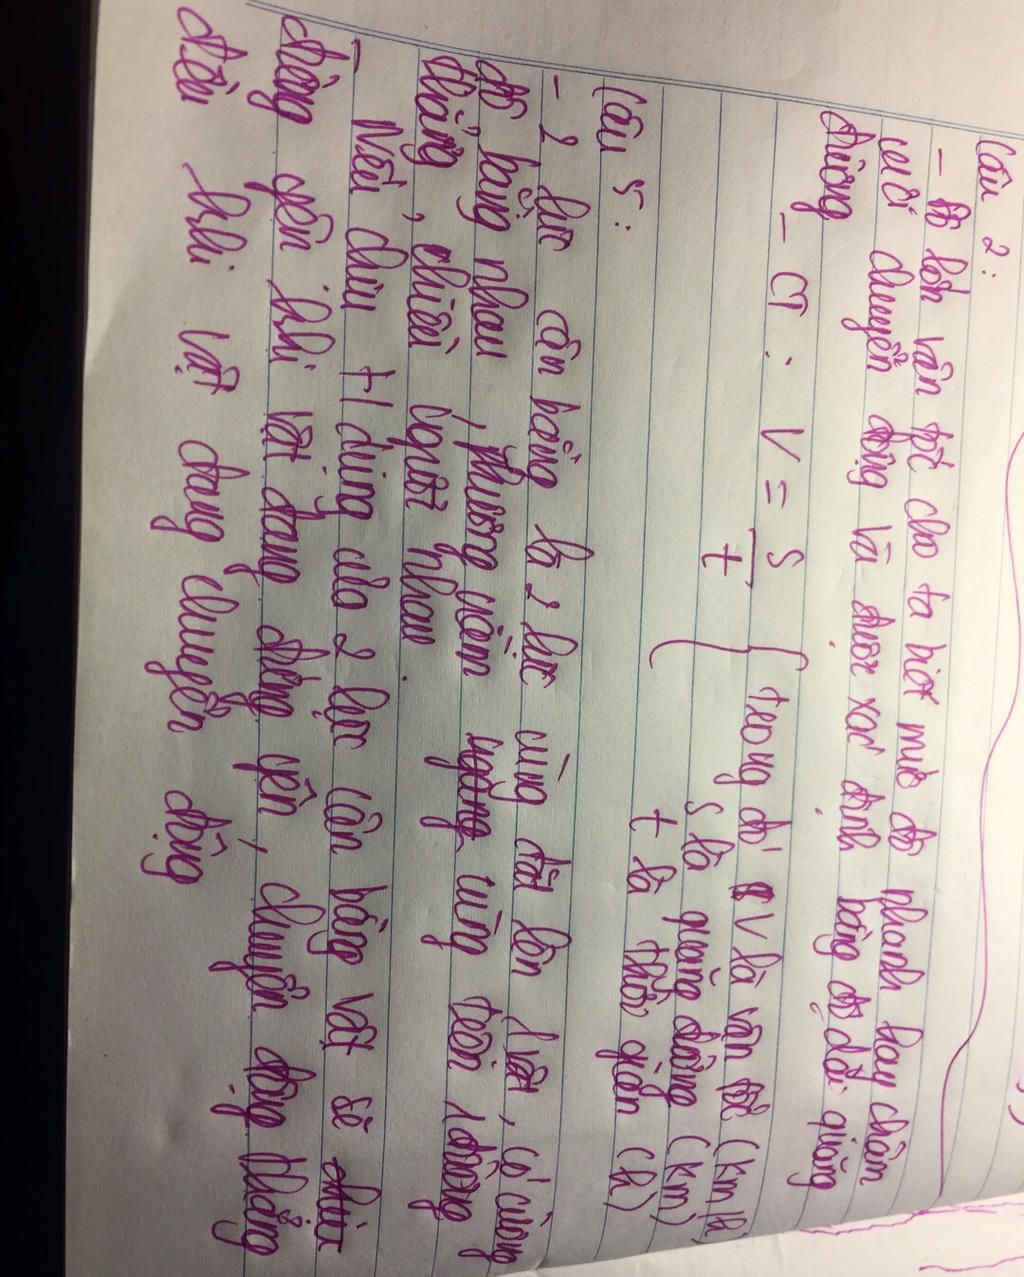 Câu 2:
- độ lớn vận tốc cho ta biết mức độ nhanh hay chậm
của chuyển động và được xác định bằng độ dài quãng
đường
- CT : V = s/t { trong đó V là vận tốc (km/h)
s là quãng đường (km)
t là thời gian (h)
Câu 5:
- 2 lực cân bằng là 2 lực cùng đặt lên 1 vật, có cường
độ bằng nhau, phương nằm cùng trên 1 đường
thẳng, chiều ngược nhau.
- Nếu chịu t/dụng của 2 lực cân bằng vật sẽ
đứng yên khi vật đang đứng yên, chuyển động thẳng
đều khi vật đang chuyển động